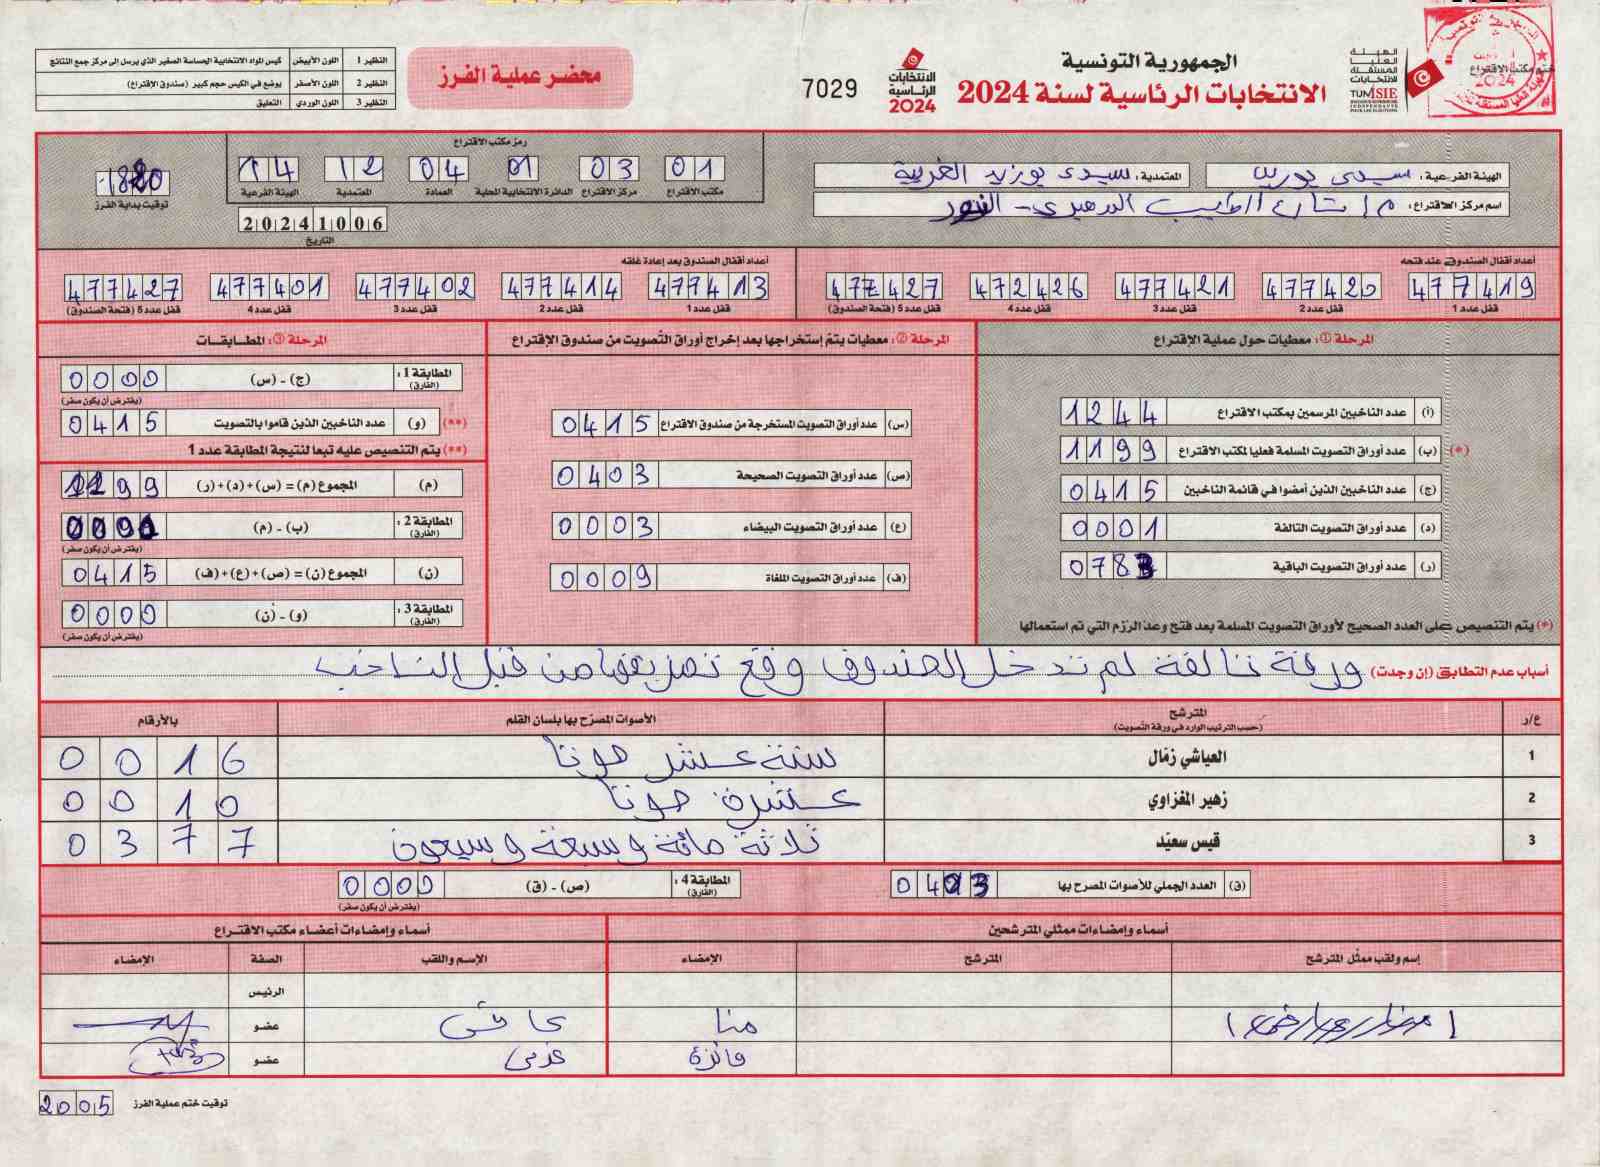 الجمهورية التونسية
الانتخابات الرئاسية لسنة 2024
الهيئة العليا المستقلة للانتخابات
TUNISIE
ختم مكتب الاقتراع
الانتخابات الرئاسية 2024
7029
محضر عملية الفرز
النظير 1 اللون الأبيض كيس المواد الانتخابية الحساسة الصغير الذي يرسل إلى مركز جمع النتائج
النظير 2 اللون الأصفر يوضع في الكيس حجم كبير (صندوق الإقتراع)
النظير 3 اللون الوردي التعليق
الهيئة الفرعية: سيدي بوزيد المعتمدية: سيدي بوزيد الغربية
اسم مركز الاقتراع: م إ شارع الطيب المهيري - النور
رمز مكتب الاقتراع
01 03 01 04 12 14
مكتب الاقتراع مركز الاقتراع الدائرة الانتخابية المحلية العمادة المعتمدية الهيئة الفرعية
20241006
التاريخ
1820
توقيت بداية الفرز
أعداد أقفال الصندوق عند فتحه
477419 477420 477421 472426 477427
قفل عدد 1 قفل عدد 2 قفل عدد 3 قفل عدد 4 قفل عدد 5 (فتحة الصندوق)
أعداد أقفال الصندوق بعد إعادة غلقه
477413 477414 477402 477401 477427
قفل عدد 1 قفل عدد 2 قفل عدد 3 قفل عدد 4 قفل عدد 5 (فتحة الصندوق)
المرحلة ①: معطيات حول عملية الإقتراع
(أ) عدد الناخبين المرسمين بمكتب الاقتراع 1244
(*) (ب) عدد أوراق التصويت المسلمة فعليا لمكتب الاقتراع 1199
(ج) عدد الناخبين الذين أمضوا في قائمة الناخبين 0415
(د) عدد أوراق التصويت التالفة 0001
(ر) عدد أوراق التصويت الباقية 0783
(*) يتم التنصيص على العدد الصحيح لأوراق التصويت المسلمة بعد فتح وعد الرزم التي تم استعمالها
المرحلة ②: معطيات يتم إستخراجها بعد إخراج أوراق التصويت من صندوق الإقتراع
(س) عدد أوراق التصويت المستخرجة من صندوق الاقتراع 0415
(ص) عدد أوراق التصويت الصحيحة 0403
(ع) عدد أوراق التصويت البيضاء 0003
(ف) عدد أوراق التصويت الملغاة 0009
المرحلة ③: المطابقات
المطابقة 1: (الفارق) (ج) - (س) 0000
(يفترض أن يكون صفر)
(**) (و) عدد الناخبين الذين قاموا بالتصويت 0415
(**) يتم التنصيص عليه تبعا لنتيجة المطابقة عدد 1
(م) المجموع (م) = (س)+(د)+(ر) 1199
المطابقة 2: (الفارق) (ب) - (م)
(يفترض أن يكون صفر)
(ن) المجموع (ن) = (ص)+(ع)+(ف) 0415
المطابقة 3: (الفارق) (و) - (ن) 0000
(يفترض أن يكون صفر)
أسباب عدم التطابق (إن وجدت) ورقة تالفة لم تدخل الصندوق وقع تمزيقها من قبل الناخب
ع/ر المترشح الأصوات المصرّح بها بلسان القلم بالأرقام
(حسب الترتيب الوارد في ورقة التصويت)
1 العياشي زمّال ستة عشر صوتا 0016
2 زهير المغزاوي عشرة صوتا 0010
3 قيس سعيّد ثلاثة مائة وسبعة وسبعون 0377
(ق) العدد الجملي للأصوات المصرح بها 0403
المطابقة 4: (الفارق) (ص) - (ق) 0000
(يفترض أن يكون صفر)
أسماء وإمضاءات ممثلي المترشحين
أسماء وإمضاءات أعضاء مكتب الاقتراع
إسم ولقب ممثل المترشح المترشح الإمضاء الإسم واللقب الصفة الإمضاء
الرئيس
منا عضو
فائزة عضو
توقيت ختم عملية الفرز 2005